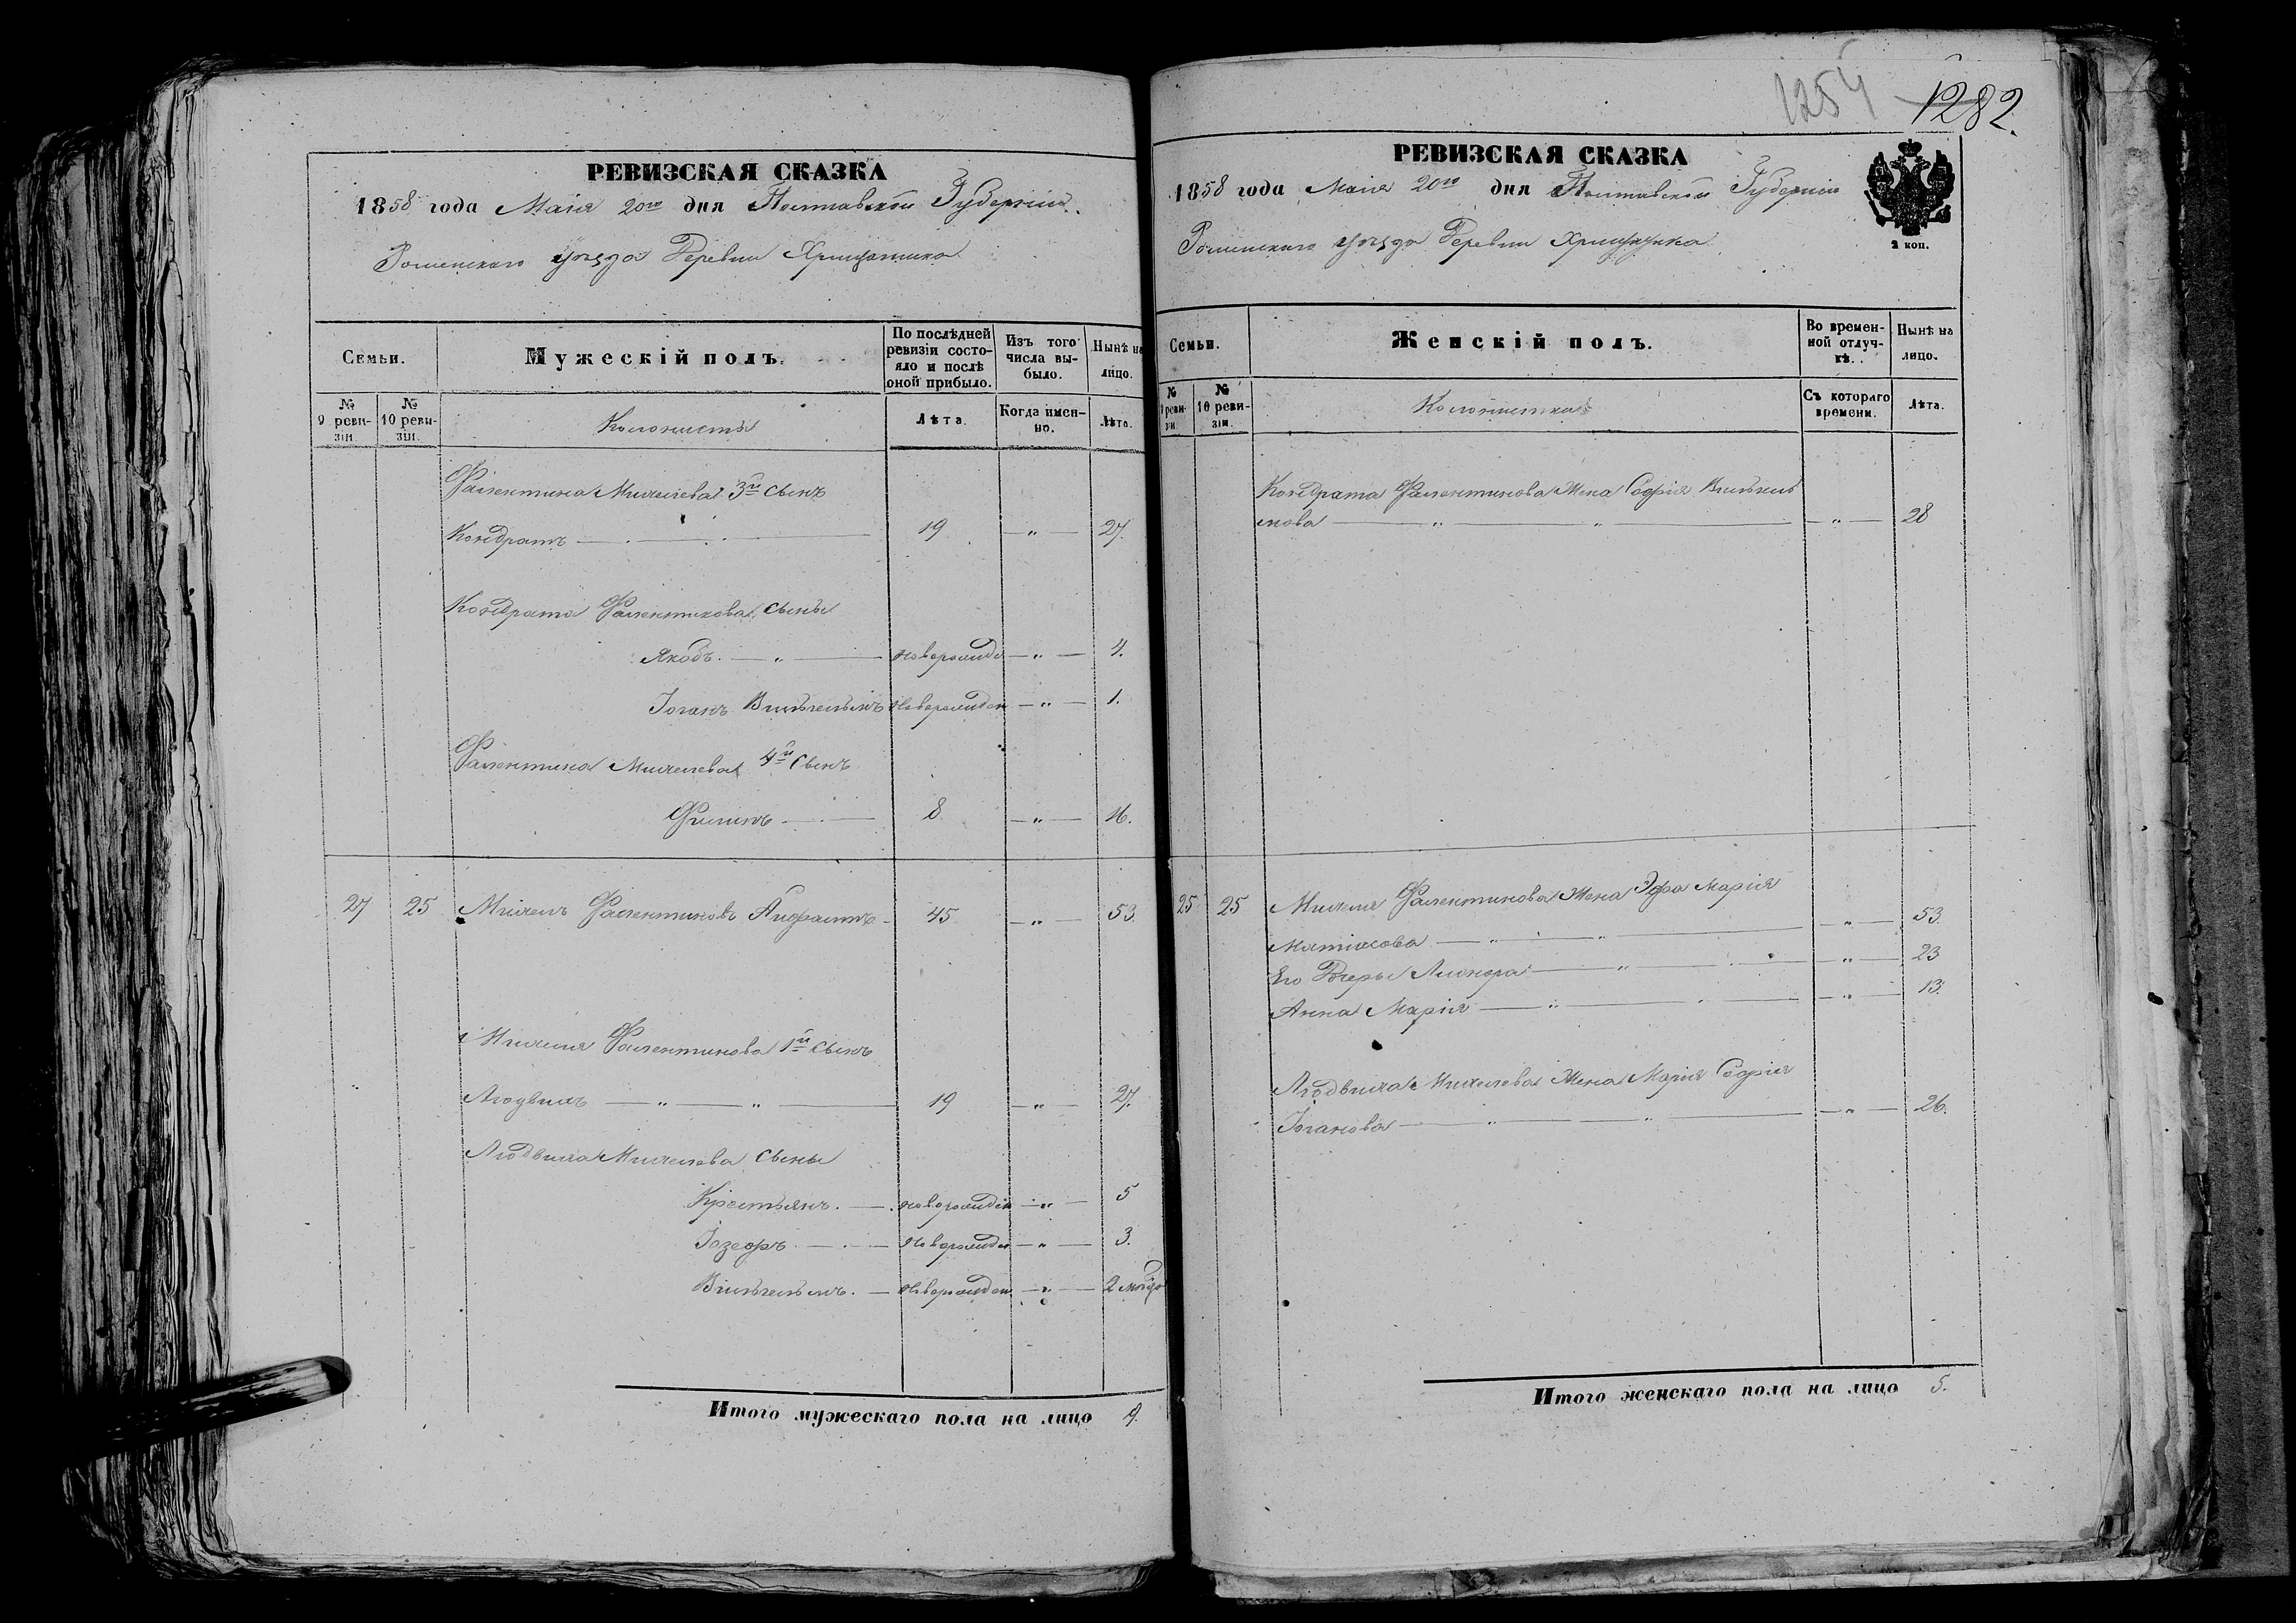 РЕВИЗСКАЯ СКАЗКА
1858 года Маія 20го дня Полтавской Губерніи
Роменскаго уѣзда Деревни Хрищатика
Семьи.
Мужескій полъ.
По послѣдней ревизіи состояло и послѣ оной прибыло.
Изъ того числа выбыло.
Нынѣ на лицо.
№ 9 ревизіи
№ 10 ревизіи.
Колонисты
Лѣта.
Когда именно.
Лѣта.
Фалентина Михелева 3й сынъ
Кондратъ 19 — „ — 27.
Кондрата Фалентинова сыны
Якобъ. — „ — новорожде — „ — 4.
Іоганъ Вильгельмъ новорожден — „ — 1.
Фалентина Михелева 4й сынъ
Филипъ 8 — „ — 16.
27 25 Михель Фалентиновъ 45 — „ — 53.
Михеля Фалентинова 1й сынъ
Людвихъ — „ — „ — 19 — „ — 27.
Людвиха Михелева сыны
Крестьянъ. — новорожден — „ — 5
Іозефъ — новорожде — „ — 3.
Вильгельмъ. — новорожден — „ — 2 мѣсяц
Итого мужескаго пола на лицо 9.
1254
1282.
РЕВИЗСКАЯ СКАЗКА
2 коп.
1858 года Маія 20го дня Полтавской Губерніи
Роменскаго уѣзда Деревни Хрищатика
Семьи.
Женскій полъ.
Во временной отлучкѣ.
Нынѣ на лицо.
№ 9 ревизіи
№ 10 ревизіи.
Колонистки
Съ котораго времени.
Лѣта.
Кондрата Фалентинова Жена Софія Вильгель
мова — „ — „ — „ — 28
25 25 Михеля Фалентинова Жена Эфа Марія
Матіасова — „ — „ — „ — 53.
Его Дочерь — „ — „ — 23
Анна Марія — „ — „ — 13.
Людвиха Михелева Жена Марія Софія
Іоганова — „ — „ — „ — 26.
Итого женскаго пола на лицо 5.